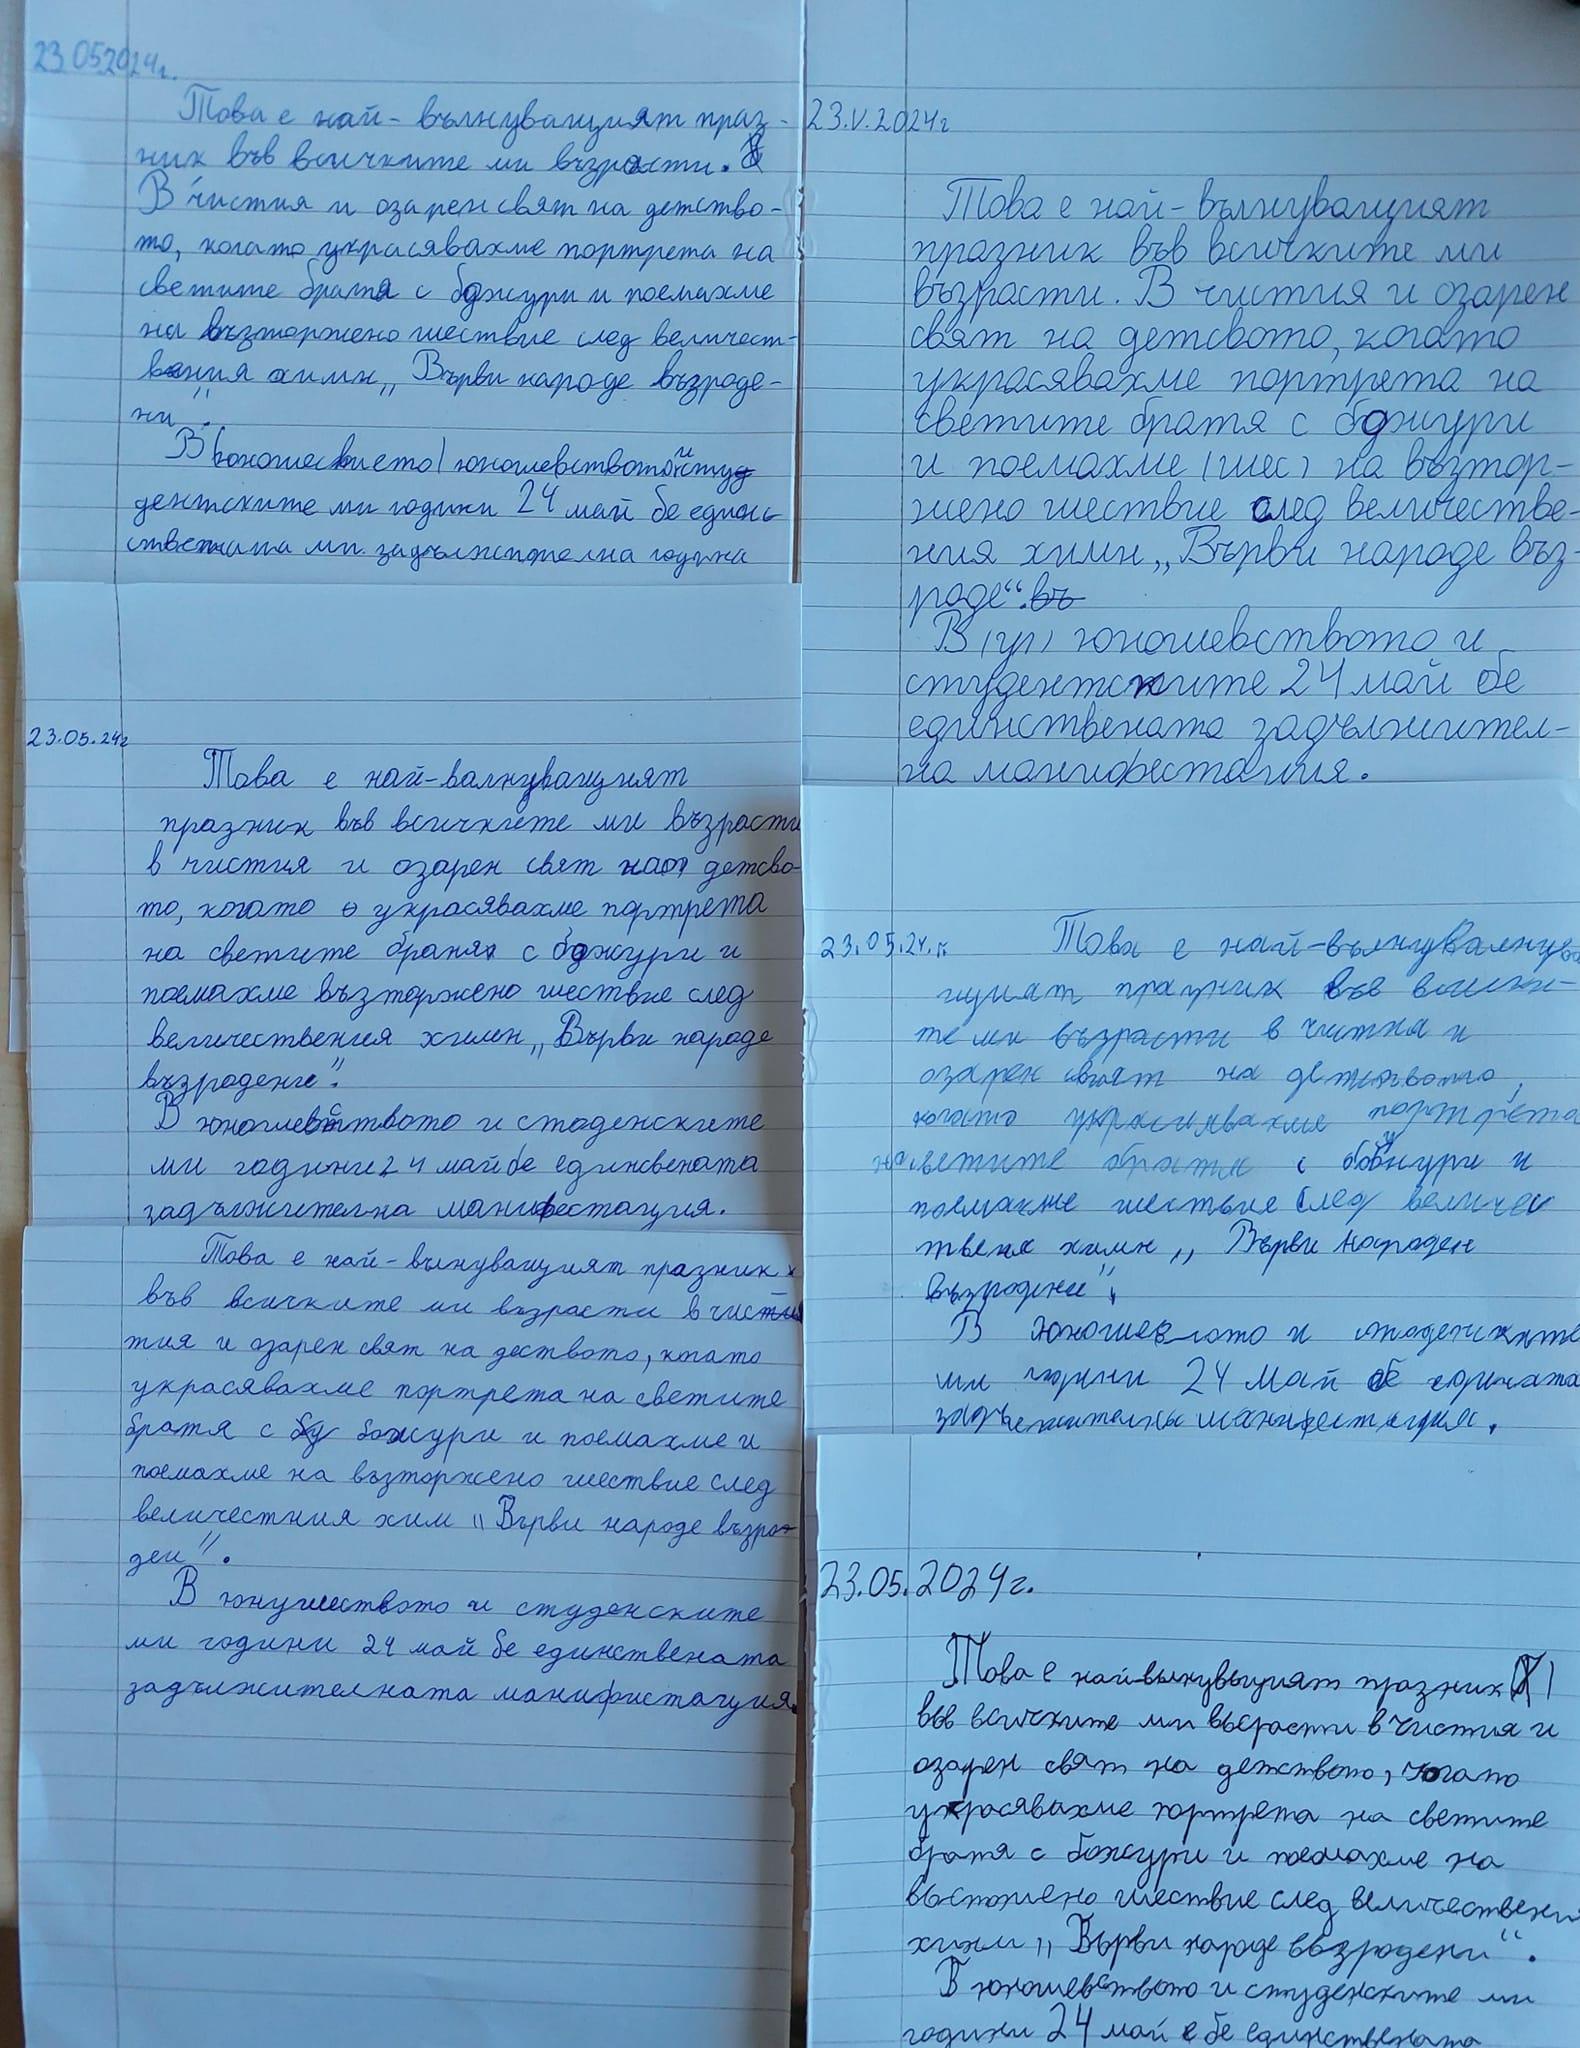 23.05.2024г.
Това е най-вълнуващият праз-
ник във всичките ми възрасти.
В чистия и озарен свят на детство-
то, когато украсявахме портрета на
светите братя с божури и поемахме
на възторжено шествие след величест-
вения химн „Върви народе възроде-
ни".
В юношевството и студ
дентските ми годики 24 май бе единс
ствената ми задължителна година
23.05.24г
Това е най-валнуващият
празник във всичките ми възрасти
в чистия и озарен свят на детсво-
то, когато украсявахме портрета
на светите братя с божури и
поемахме възторжено шествие след
величествения химн „Върви народе
възродени".
В юношевството и стоденските
ми години 24 май бе единсвената
задължителна манифестация.
Това е най-вънуващият празник
във всичките ми възрасти в чисти
тия и озарен свят на деството, когато
украсявахме портрета на светите
братя с божури и поемахме и
поемахме на възторжено шествие след
величестния хим „Върви народе възро-
ден".
В юнушеството и студенските
ми години 24 май бе единствената
задължителната манифистация.
23.V.2024г
Това е най-вълнуващият
празник във всичките ми
възрасти. В чистия и озарен
свят на детсвото, когато
украсявахме портрета на
светите братя с божури
и поемахме (шес) на възтор-
жено шествие след величестве-
ния химн „Върви народе въз-
роде“. въ
В (уп) юношевството и
студентските 24 май бе
единствената задължител-
на манифестация.
23.05.24.г.
Това е най-вълнуваленува
щият празник във всички-
те ми възрасти в чистия и
озарен свят на детството,
когато украсявахме портрета
на светите братя с божури и
поемахме шествие след величес
твеня химн „Върви народен
възродени".
В юношевлото и стоденските
ми години 24 май бе едичата
задължителна манифестация.
23.05.2024г.
Това е найвънувъщият празник
във всичките ми въсрасти в чистия и
озарен свят на детството, когато
украсявахме портрета на светите
братя с божури и поемахме на
въсторжено шествие след величествени
химн „Върви народе възродени“.
В юношевството и студенските ми
години 24 май е бе единствената